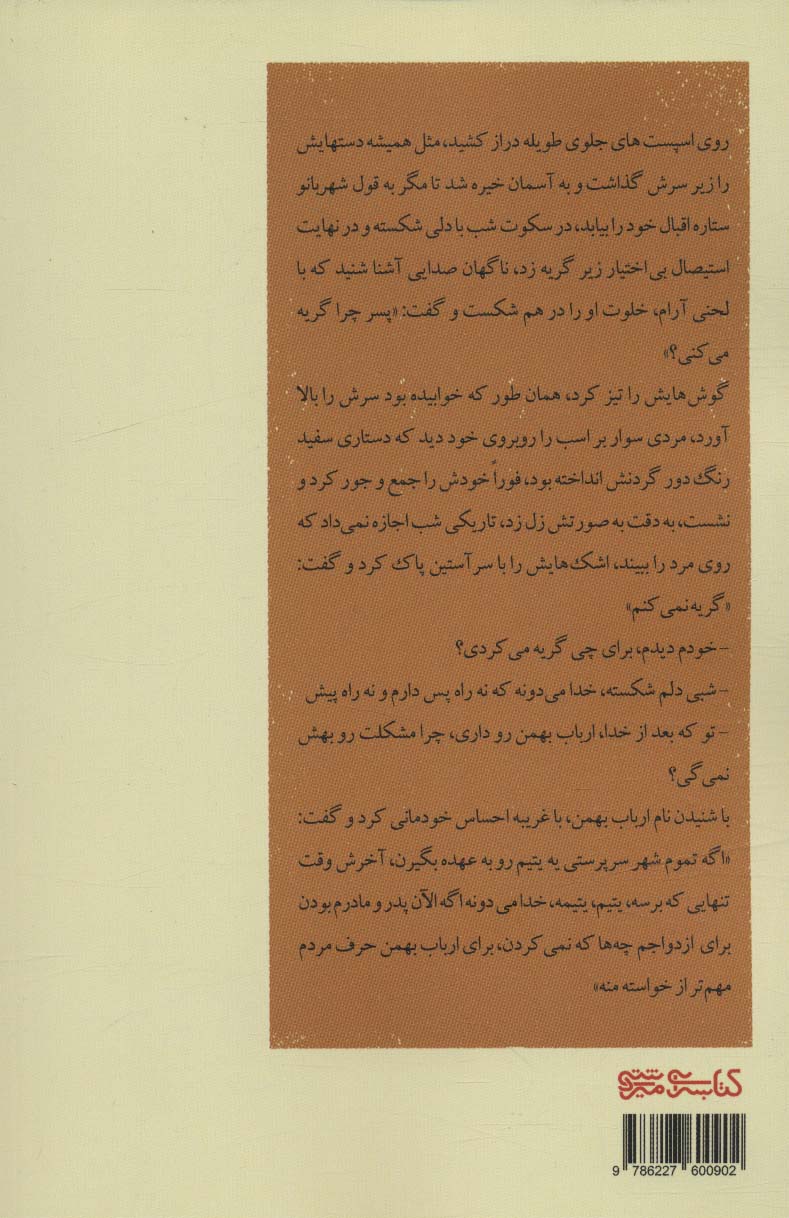 روی اسپست های جلوی طویله دراز کشید، مثل همیشه دستهایش
را زیر سرش گذاشت و به آسمان خیره شد تا مگر به قول شهربانو
ستاره اقبال خود را بیابد، در سکوت شب با دلی شکسته و در نهایت
استیصال بی‌اختیار زیر گریه زد، ناگهان صدایی آشنا شنید که با
لحنی آرام، خلوت او را در هم شکست و گفت: «پسر چرا گریه
می‌کنی؟»
گوش‌هایش را تیز کرد، همان طور که خوابیده بود سرش را بالا
آورد، مردی سوار بر اسب را روبروی خود دید که دستاری سفید
رنگ دور گردنش انداخته بود، فوراً خودش را جمع و جور کرد و
نشست، به دقت به صورتش زل زد، تاریکی شب اجازه نمی‌داد که
روی مرد را ببیند، اشک‌هایش را با سر آستین پاک کرد و گفت:
«گریه نمی‌کنم»
- خودم دیدم، برای چی گریه می‌کردی؟
- شبی دلم شکسته، خدا می‌دونه که نه راه پس دارم و نه راه پیش
- تو که بعد از خدا، ارباب بهمن رو داری، چرا مشکلت رو بهش
نمی‌گی؟
با شنیدن نام ارباب بهمن، با غریبه احساس خودمانی کرد و گفت:
«اگه تموم شهر سرپرستی یه یتیم رو به عهده بگیرن، آخرش وقت
تنهایی که برسه، یتیم، یتیمه، خدا می دونه اگه الآن پدر و مادرم بودن
برای ازدواجم چه‌ها که نمی‌کردن، برای ارباب بهمن حرف مردم
مهم‌تر از خواسته منه»
9 786227 600902